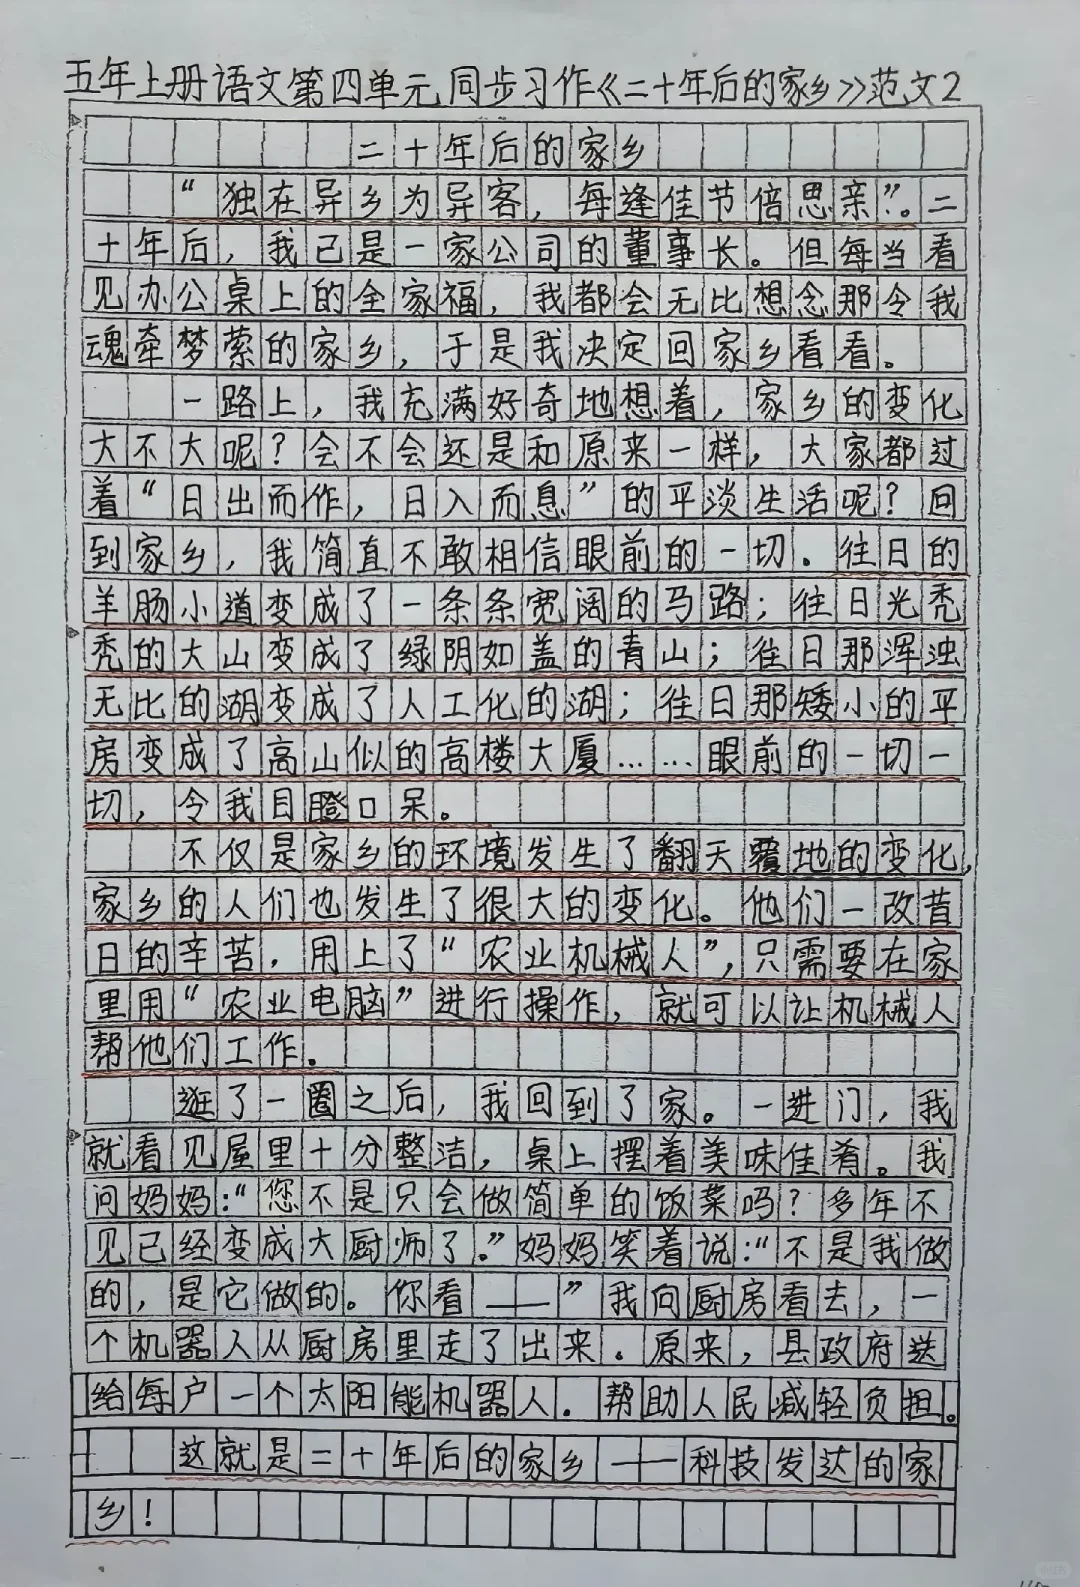 五年上册语文第四单元同步习作《二十年后的家乡》范文2
二十年后的家乡
“独在异乡为异客，每逢佳节倍思亲”。二
十年后，我已是一家公司的董事长。但每当看
见办公桌上的全家福，我都会无比想念那令我
魂牵梦萦的家乡，于是我决定回家乡看看。
一路上，我充满好奇地想着，家乡的变化
大不大呢？会不会还是和原来一样，大家都过
着“日出而作，日入而息”的平淡生活呢？回
到家乡，我简直不敢相信眼前的一切。往日的
羊肠小道变成了一条条宽阔的马路；往日光秃
秃的大山变成了绿阴如盖的青山；往日那浑浊
无比的湖变成了人工化的湖；往日那矮小的平
房变成了高山似的高楼大厦……眼前的一切一
切，令我目瞪口呆。
不仅是家乡的环境发生了翻天覆地的变化，
家乡的人们也发生了很大的变化。他们一改昔
日的辛苦，用上了“农业机械人”，只需要在家
里用“农业电脑”进行操作，就可以让机械人
帮他们工作。
逛了一圈之后，我回到了家。一进门，我
就看见屋里十分整洁，桌上摆着美味佳肴。我
问妈妈：“您不是只会做简单的饭菜吗？多年不
见已经变成大厨师了。”妈妈笑着说：“不是我做
的，是它做的。你看——”我向厨房看去，一
个机器人从厨房里走了出来．原来，县政府送
给每户一个太阳能机器人．帮助人民减轻负担。
这就是二十年后的家乡——科技发达的家
乡！